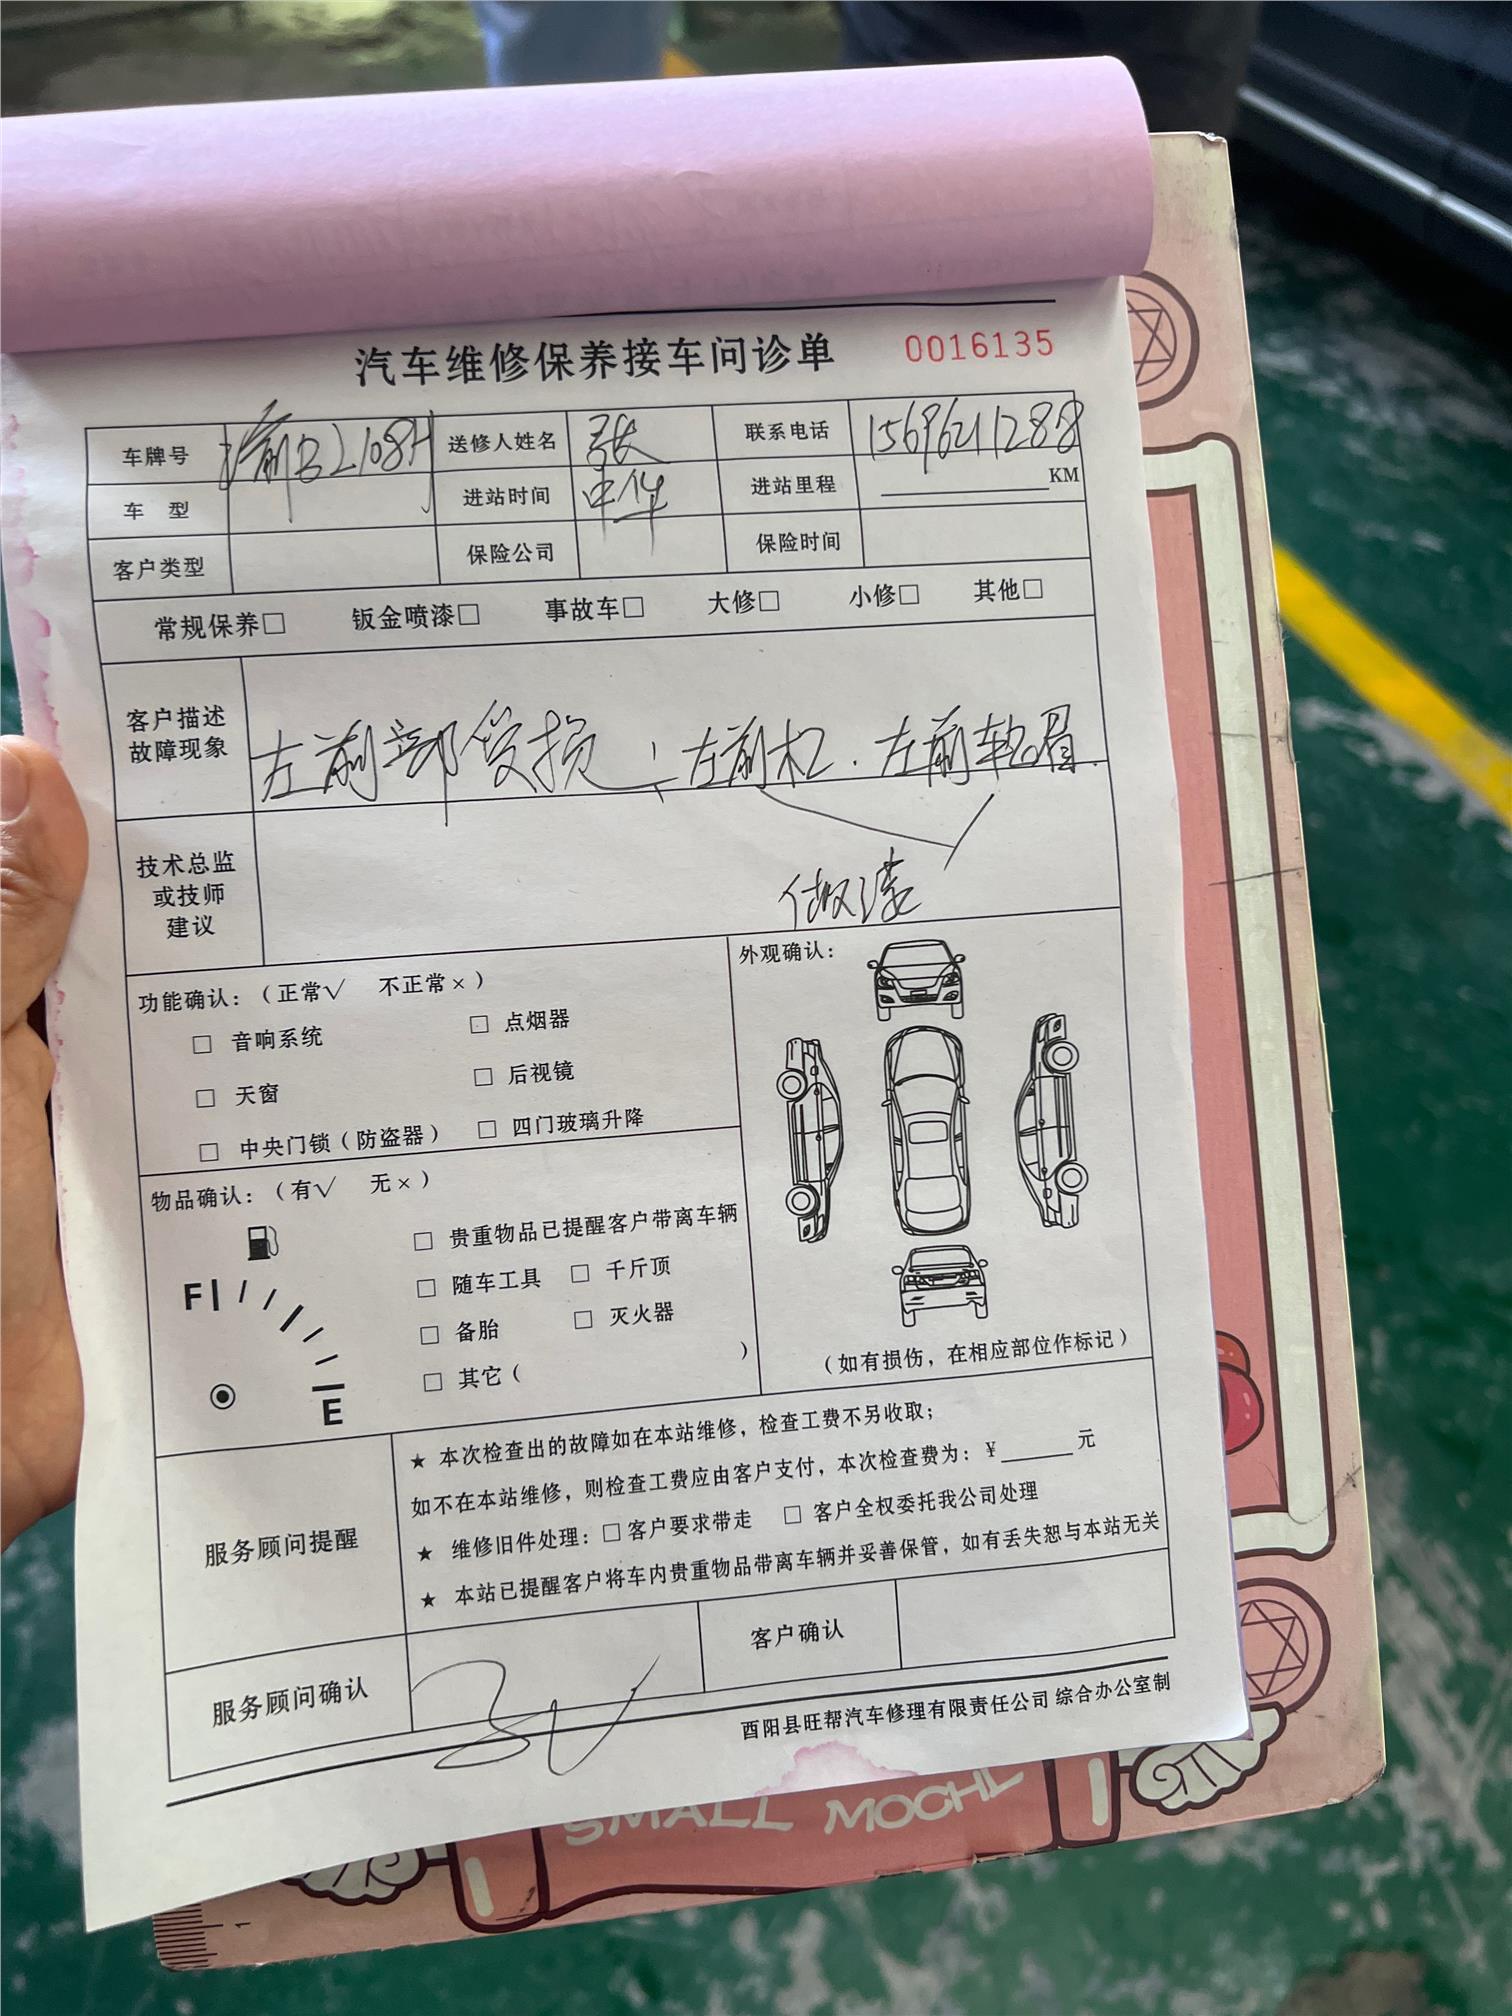 汽车维修保养接车问诊单 0016135
车牌号 渝BL108H 送修人姓名 张中华 联系电话 15696211288
车 型 进站时间 进站里程 KM
客户类型 保险公司 保险时间
常规保养□ 钣金喷漆□ 事故车□ 大修□ 小修□ 其他□
客户描述
故障现象
左前部受损；左前杠．左前轮眉．
做漆
技术总监
或技师
建议
功能确认：（正常√ 不正常×）
□ 音响系统 □ 点烟器
□ 天窗 □ 后视镜
□ 中央门锁（防盗器） □ 四门玻璃升降
外观确认：
（如有损伤，在相应部位作标记）
物品确认：（有√ 无×）
F
E
□ 贵重物品已提醒客户带离车辆
□ 随车工具 □ 千斤顶
□ 备胎 □ 灭火器
□ 其它（ ）
服务顾问提醒
★ 本次检查出的故障如在本站维修，检查工费不另收取；
如不在本站维修，则检查工费应由客户支付，本次检查费为：¥ 元
★ 维修旧件处理：□客户要求带走 □ 客户全权委托我公司处理
★ 本站已提醒客户将车内贵重物品带离车辆并妥善保管，如有丢失恕与本站无关
服务顾问确认 客户确认
酉阳县旺帮汽车修理有限责任公司 综合办公室制
SMALL MOCHL
1